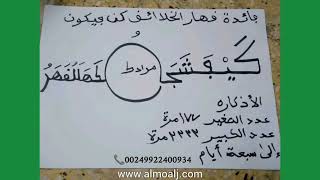 فائدة قهار الخلائق كن فيكون
و
مرادك
الأذكار
عدد الصغير ١٧٧ مرة
عدد الكبير ٢٣٣٣ مرة
إلى سبعة أيام
00249922400934
www.almoalj.com